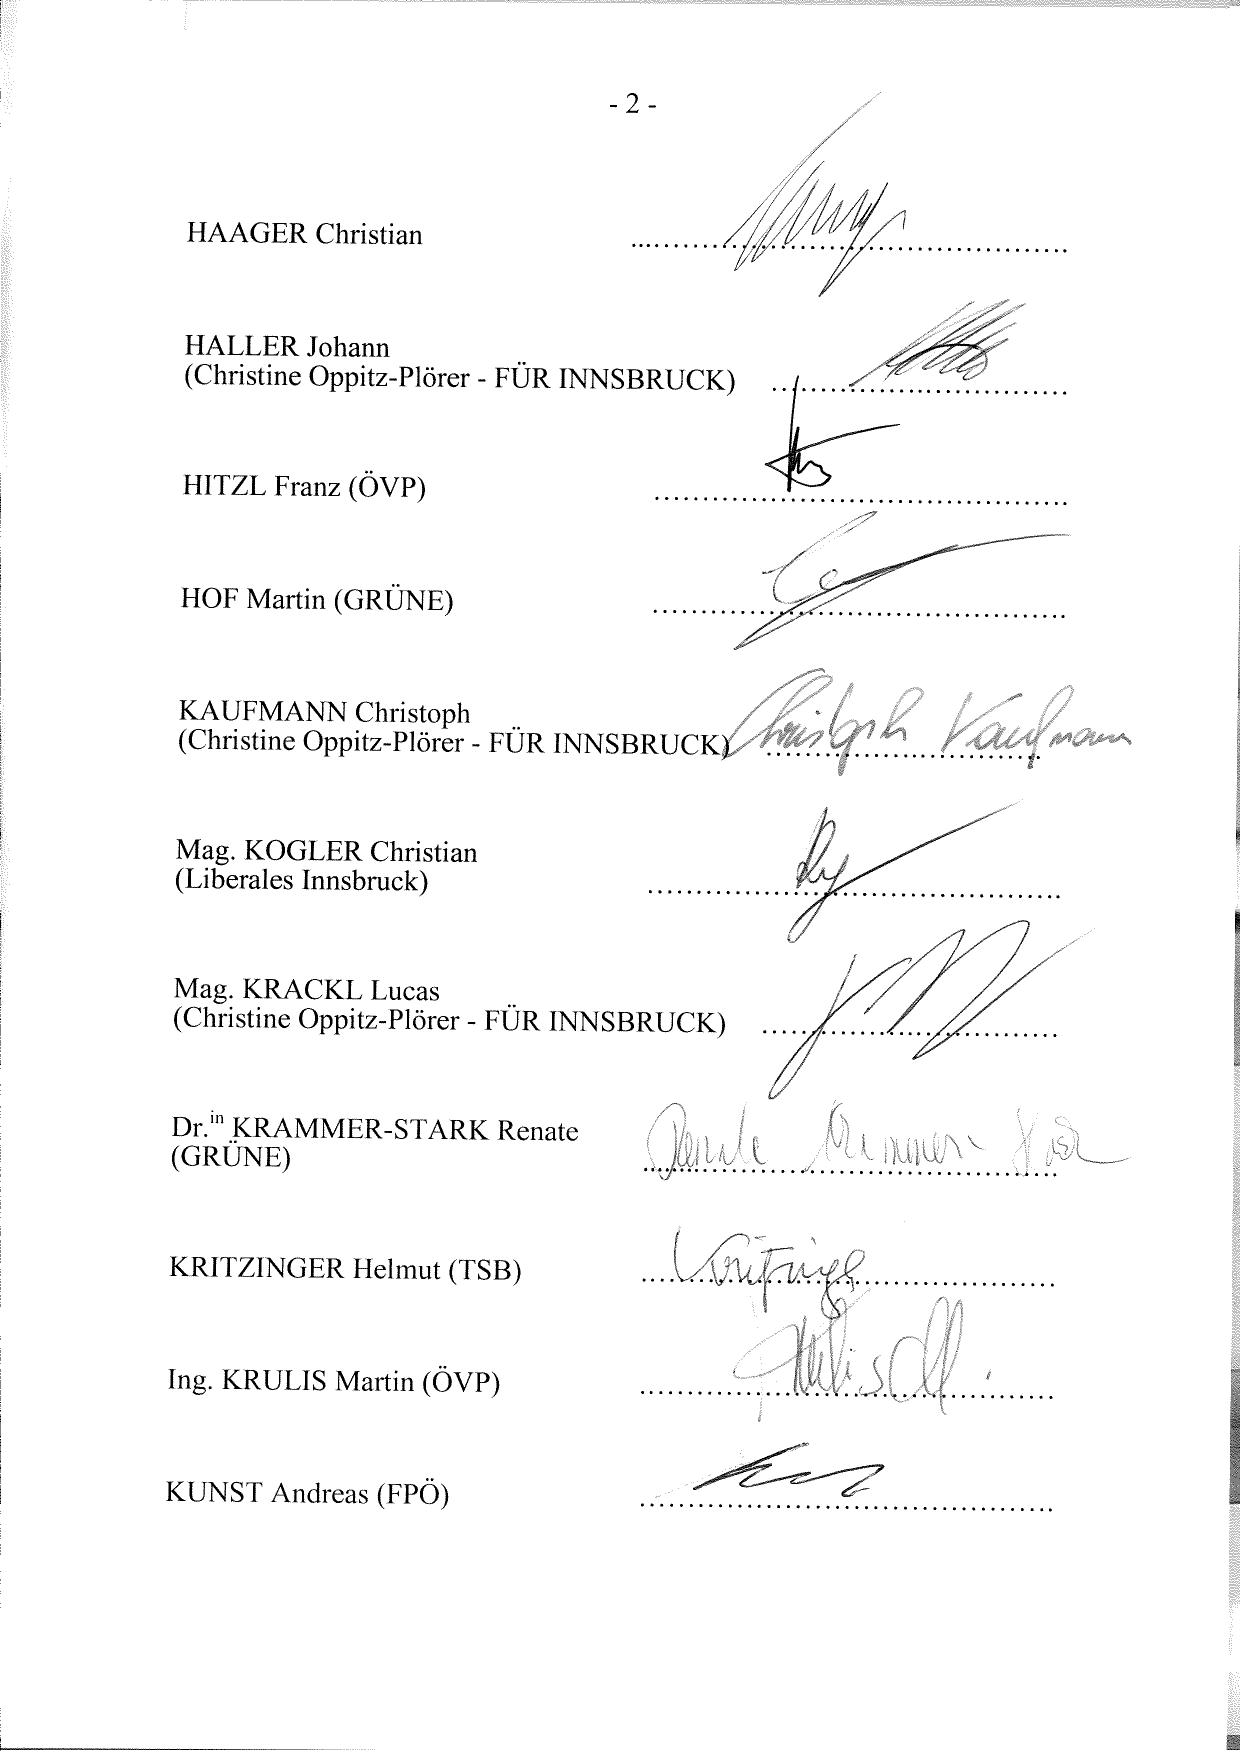 - 2 -
HAAGER Christian
HALLER Johann
(Christine Oppitz-Plörer - FÜR INNSBRUCK)
HITZL Franz (ÖVP)
HOF Martin (GRÜNE)
KAUFMANN Christoph
(Christine Oppitz-Plörer - FÜR INNSBRUCK)
Christoph Kaufmann
Mag. KOGLER Christian
(Liberales Innsbruck)
Mag. KRACKL Lucas
(Christine Oppitz-Plörer - FÜR INNSBRUCK)
Dr.in KRAMMER-STARK Renate
(GRÜNE)
Renate Krammer-Stark
KRITZINGER Helmut (TSB)
Ing. KRULIS Martin (ÖVP)
KUNST Andreas (FPÖ)